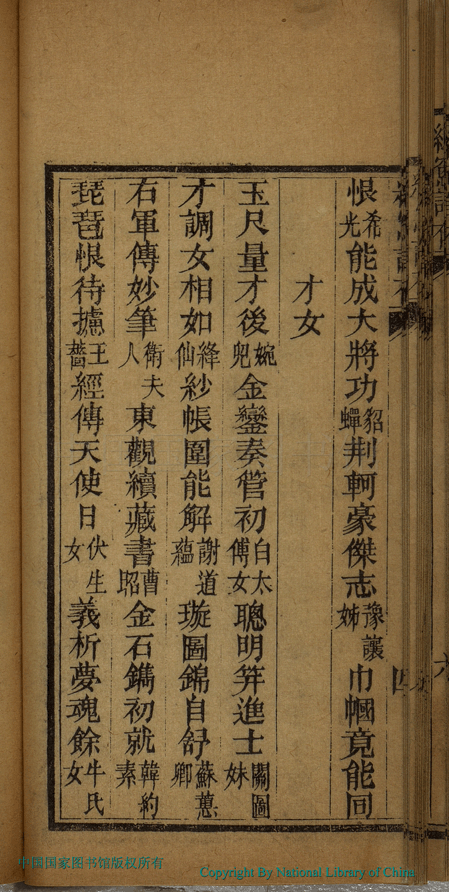 恨希光能成大將功貂蟬荆軻豪傑志豫讓姊巾幗竟能同
才女
玉尺量才後婉兒金鑾奏管初白太傅女聰明筓進士關圖妹
才調女相如絳仙紗帳圍能解謝道蘊璇圖錦自舒蘇蕙卿
右軍傳妙筆衛夫人東觀續藏書曹昭金石鐫初就韓約素
琵琶恨待攄王薔經傳天使日伏生女義析夢魂餘牛氏女
四
中国国家图书馆版权所有
Copyright By National Library of China.